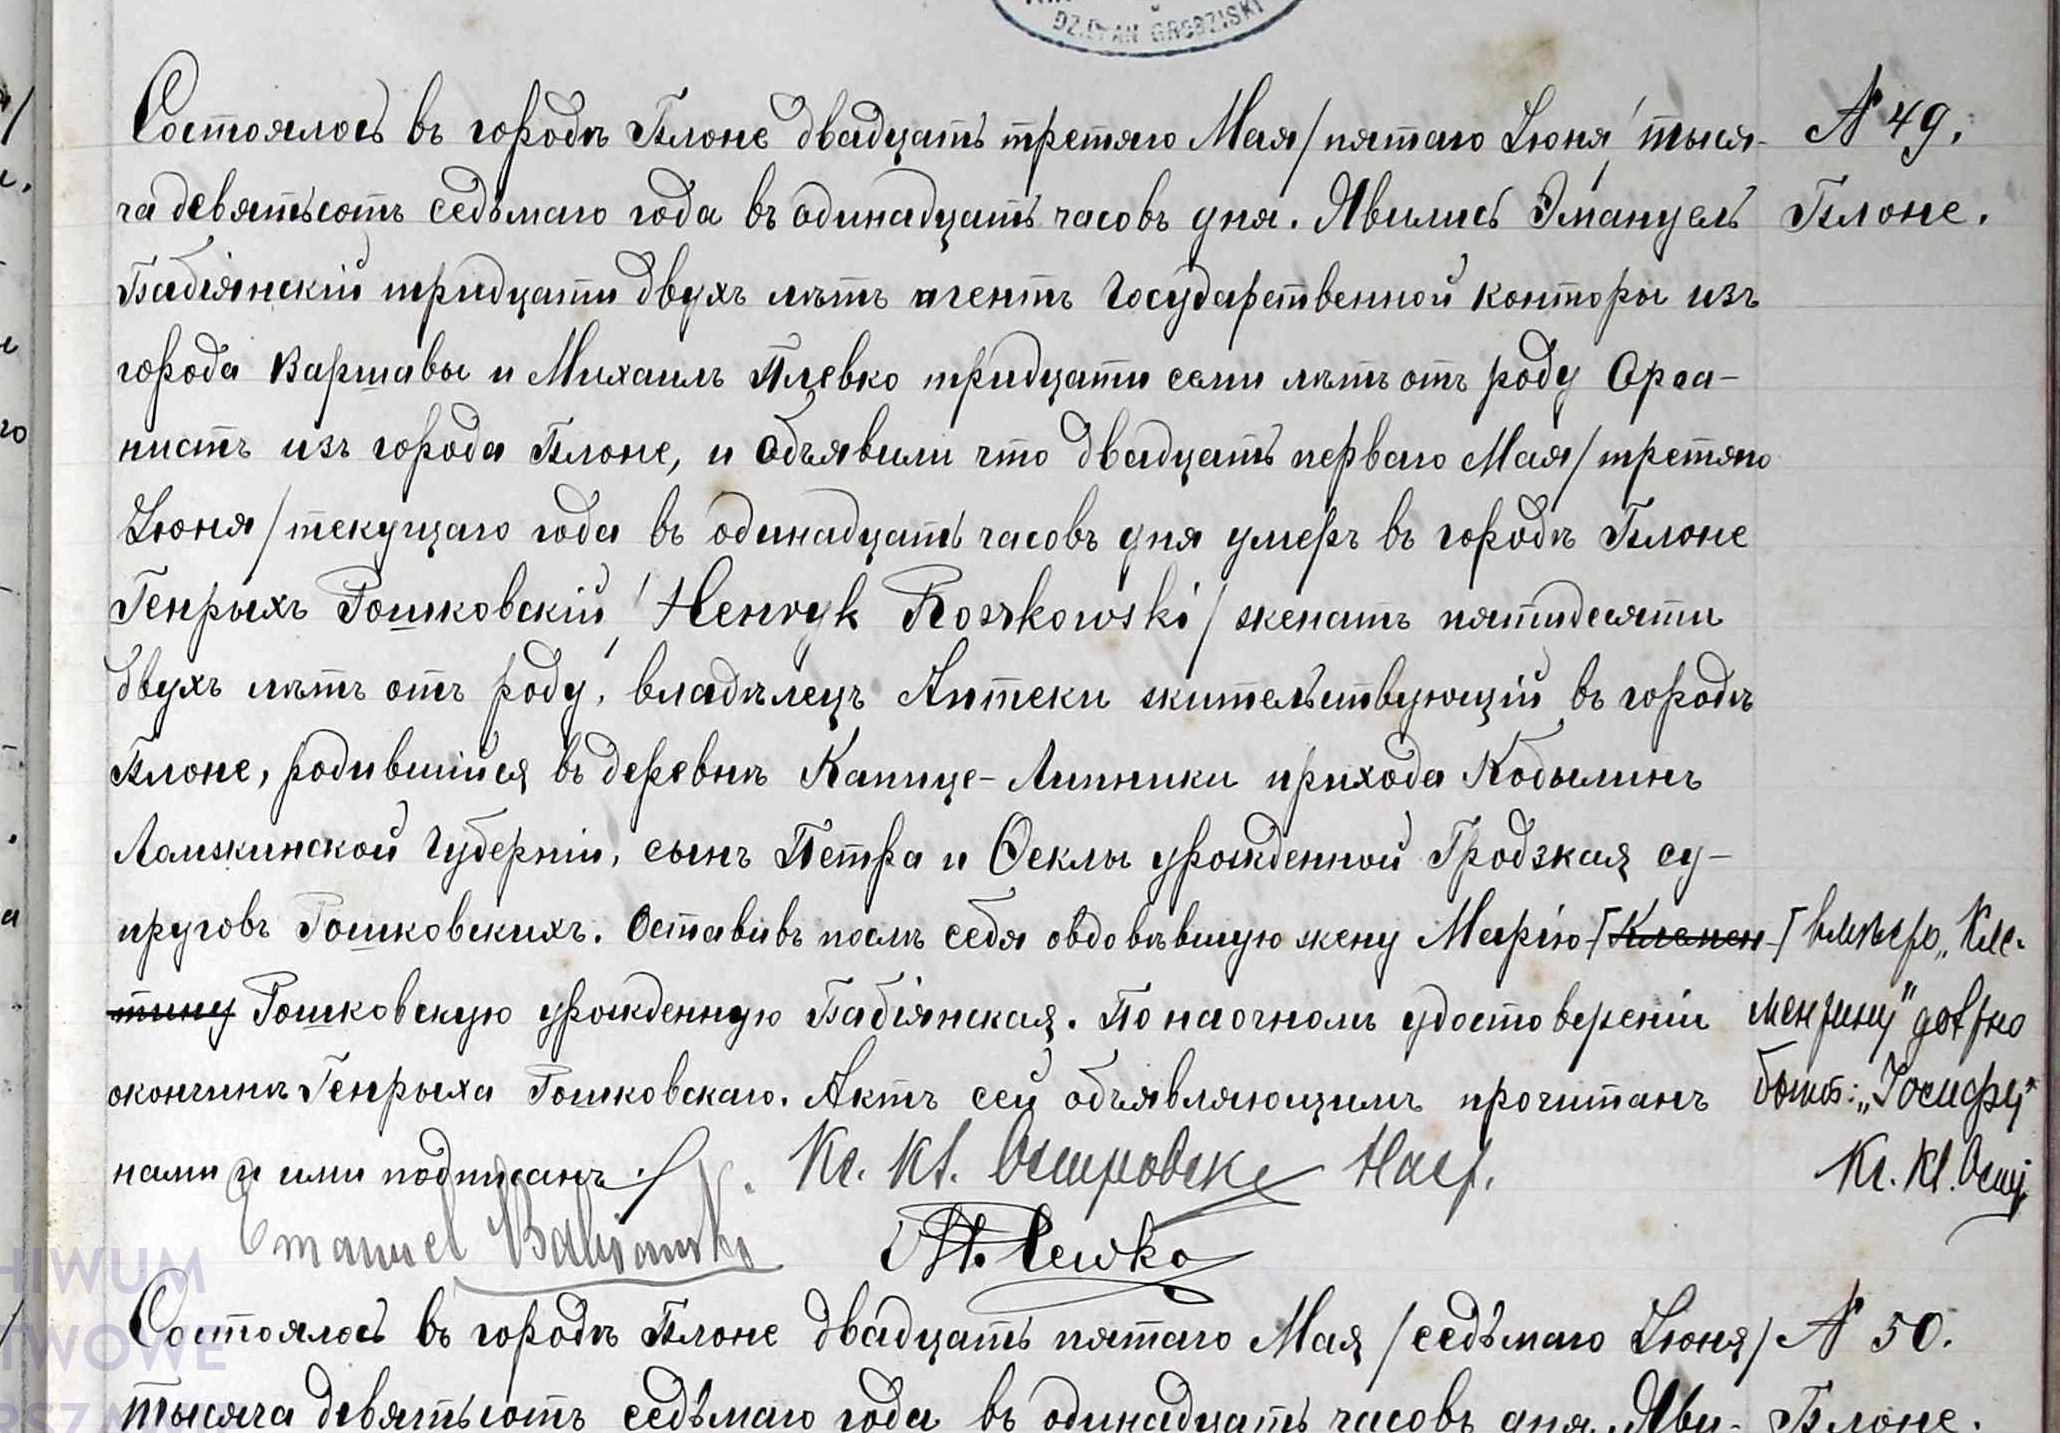 DZ.EPAN GRODZISKI
Состоялось въ городѣ Блоне двадцать третяго Мая /пятаго Іюня/ тыся- N 49.
ча девятьсотъ седьмаго года въ одинадцать часовъ дня. Явились Эмануель Блоне.
Бабіянскій тридцати двухъ лѣтъ агентъ Государственной конторы изъ
города Варшавы и Михаилъ Плевко тридцати семи лѣтъ отъ роду Орга-
нистъ изъ города Блоне, и объявили что двадцать перваго Мая /третяго
Іюня/ текущаго года въ одинадцать часовъ дня умеръ въ городѣ Блоне
Генрыхъ Рошковскій /Henryk Roszkowski/ женатъ пятидесяти
двухъ лѣтъ отъ роду, владѣлецъ Аптеки жительствующій въ городѣ
Блоне, родившійся въ деревнѣ Капице-Липники прихода Кобылинъ
Ломжинской Губерніи, сынъ Петра и Ѳеклы урожденной Гродзкая су-
пруговъ Рошковскихъ. Оставивъ послѣ себя овдовѣвшую жену Марію [Клемен-
тину Рошковскую урожденную Бабіянская. По наочномъ удостовереніи
окончинѣ Генрыха Рошковскаго. Актъ сей объявляющимъ прочитанъ
нами и ими подписанъ ./.
[ вмѣсто „Кле-
ментину" должно
быть: „Іосифу"
Кс. Кл. Остр.
Кс. Кл. Островске Наст.
Emanuel Babianski
M. Plewko
Состоялось въ городѣ Блоне двадцать пятаго Мая /седьмаго Іюня/ N 50.
тысяча девятьсотъ седьмаго года въ одинадцать часовъ дня. Яви- Блоне.